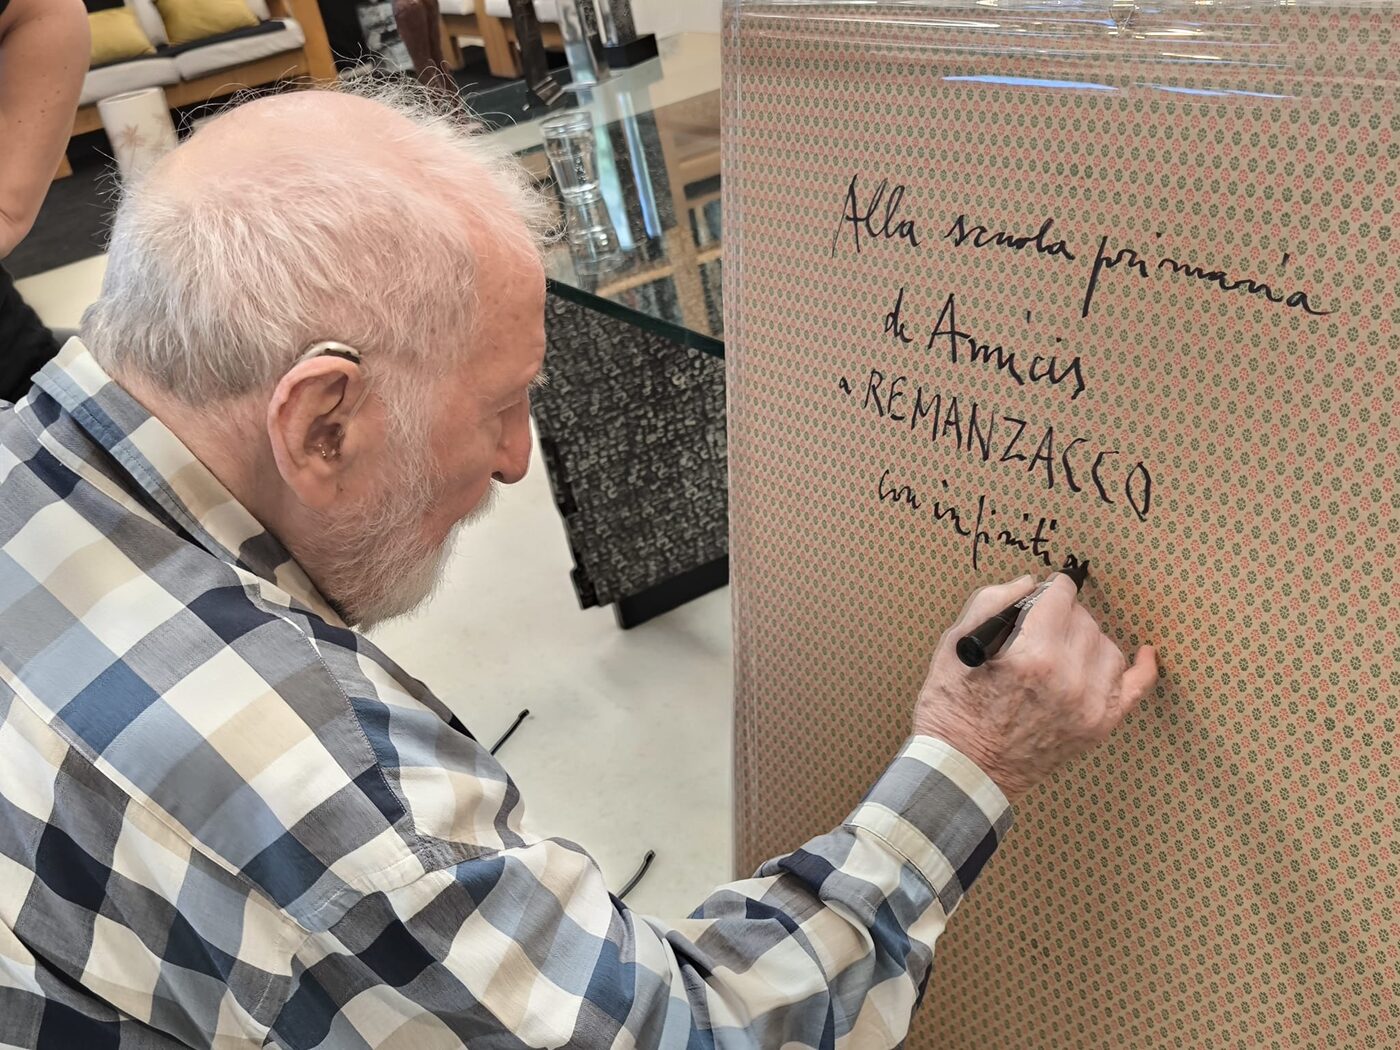 Alla scuola primaria
de Amicis
a REMANZACCO
con infiniti